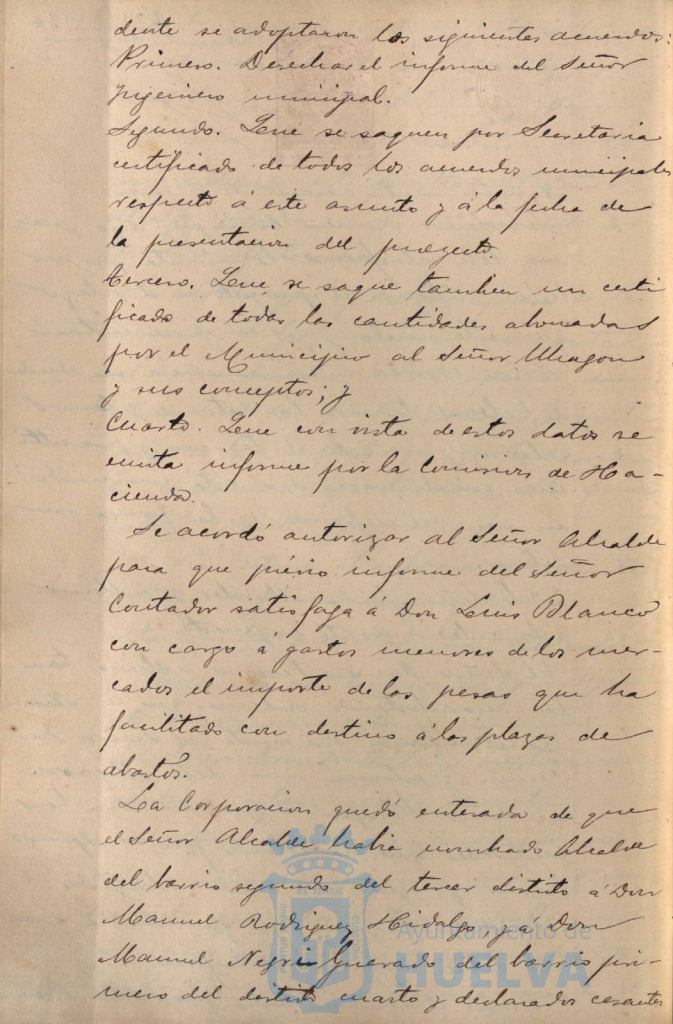 dente se adoptaron los siguientes acuerdos:
Primero. Desechar el informe del Señor
Ingeniero municipal.
Segundo. Que se saquen por Secretaria
certificado de todos los acuerdos municipales
respecto á este asunto y á la fecha de
la presentacion del proyecto.
tercero. Que se saque tambien un certi
ficado de todas las cantidades abonadas
por el Municipio al Señor
y sus conceptos; y
Cuarto. Que con vista de estos datos se
emita informe por la Comision de Ha-
cienda.
Se acordó autorizar al Señor Alcalde
para que prévio informe del Señor
Contador satisfaga á Don Luis Blanco
con cargo á gastos menores de los mer-
cados el importe de las pesas que ha
facilitado con destino á las plazas de
abastos.
La Corporacion quedó enterada de que
el Señor Alcalde habia nombrado Alcalde
del barrio segundo del tercer distrito á Don
Manuel Rodriguez Hidalgo, y á Don
Manuel Negri del barrio pri-
mero del distrito cuarto y declarados cesantes
Ayuntamiento de
HUELVA